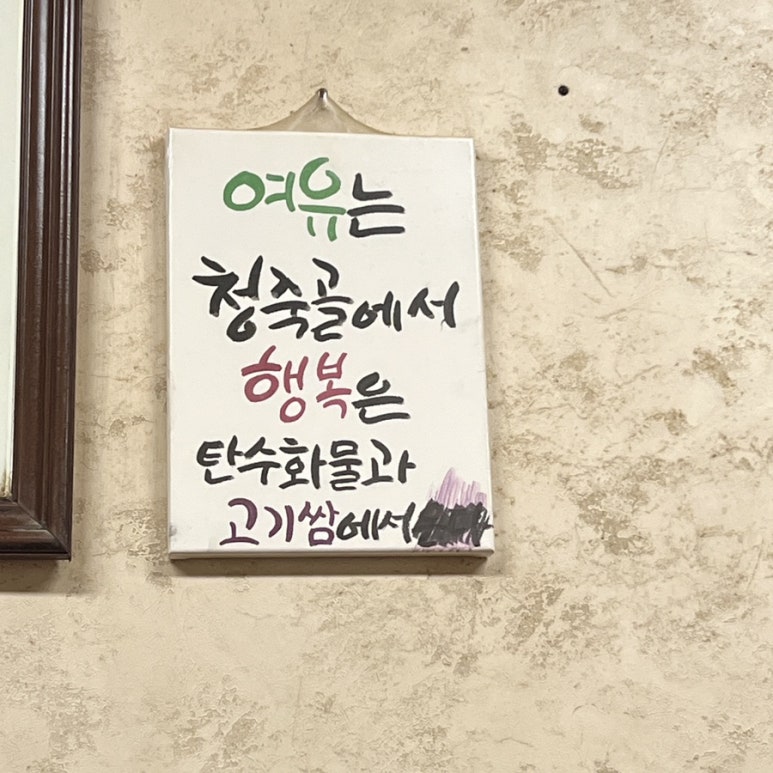 여유는
청죽골에서
행복은
탄수화물과
고기쌈에서